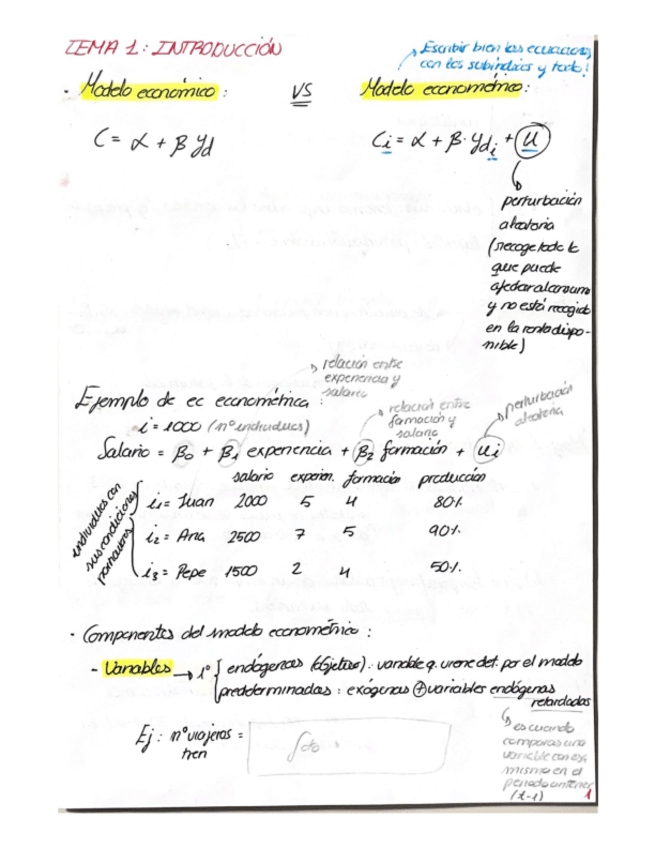 TEMA 1: INTRODUCCIÓN
Escribir bien las ecuaciones,
con los subíndices y todo!
· Modelo económico : VS Modelo econométrico:
C = α + β yd
Ci = α + β · ydi + u
perturbación
aleatoria
(recoge todo lo
que puede
afectar al consumo
y no está recogido
en la renta dispo-
nible)
relación entre
experiencia y
salario
Ejemplo de ec econométrica :
i = 1000 (nº individuos)
relación entre
formación y
salario
perturbación
aleatoria
Salario = β0 + β1 experiencia + β2 formación + ui
salario experien. formación producción
individuos con
sus condiciones
i1 = Juan 2000 5 4 80%
i2 = Ana 2500 7 5 90%
i3 = Pepe 1500 2 4 50%
· Componentes del modelo econométrico :
- Variables → 1º { endógenas (objetivo): variable q. viene det. por el modelo
predeterminadas : exógenas + variables endógenas
retardadas
Ej : nº viajeros =
tren
es cuando
comparas una
variable con ella
misma en el
periodo anterior
(t-1)
1